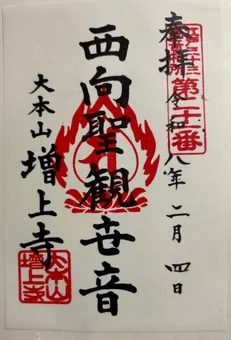 奉拝
第二十番
令和八年二月四日
西向聖観世音
大本山
増上寺
大本山
増上寺